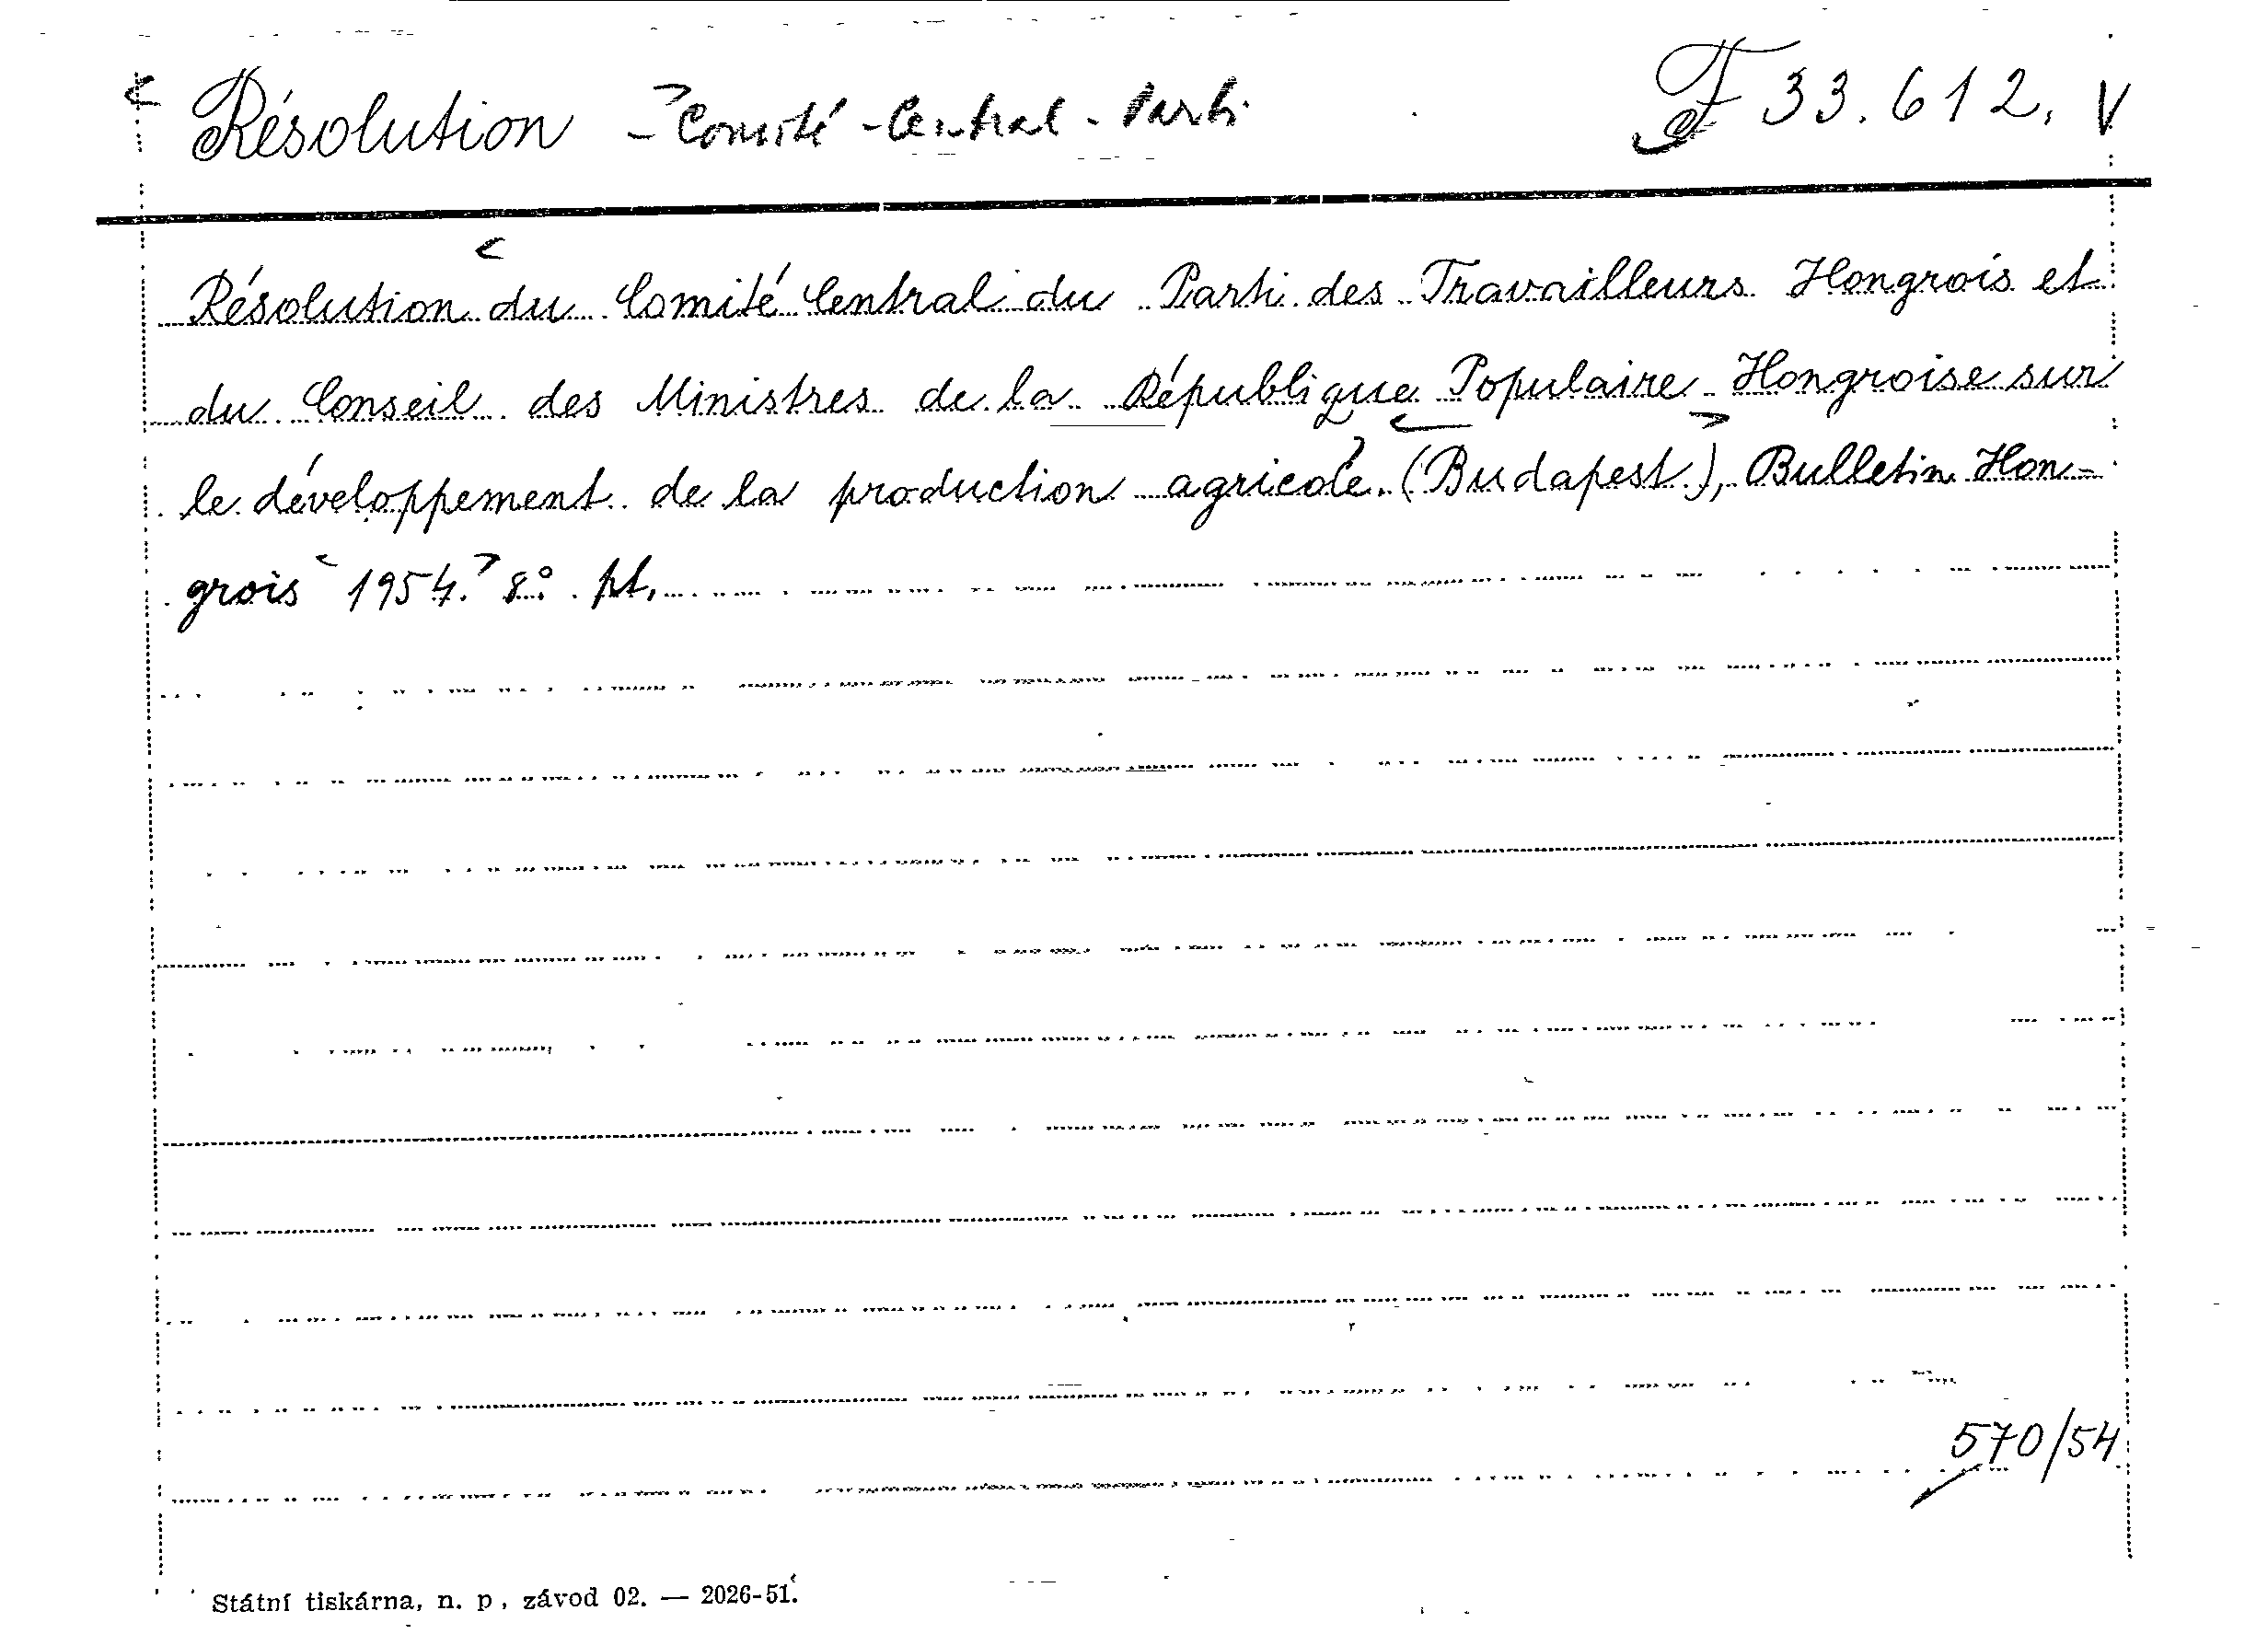 Résolution - Comité - Central - Parti F 33.612. V
Résolution du Comité Central du Parti des Travailleurs Hongrois et
du Conseil des Ministres de la République Populaire Hongroise sur
le développement de la production agricole. (Budapest), Bulletin Hon=
grois 1954. 8° pt.
570/54
Státní tiskárna, n. p., závod 02. — 2026-51.